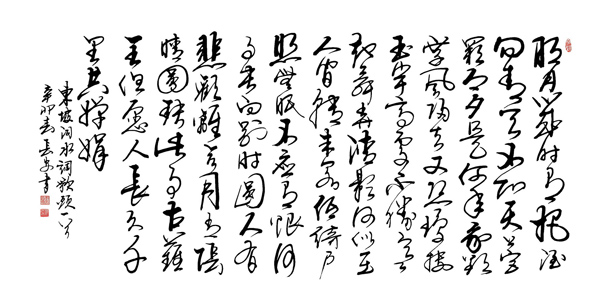 明月幾時有把酒
問青天不知天上宮
闕今夕是何年我欲
乘風歸去又恐瓊樓
玉宇高處不勝寒
起舞弄清影何似在
人間轉朱閣低綺戶
照無眠不應有恨何
事長向別時圓人有
悲歡離合月有陰
晴圓缺此事古難
全但願人長久千
里共嬋娟
東坡詞水調歌頭一首
辛卯春書